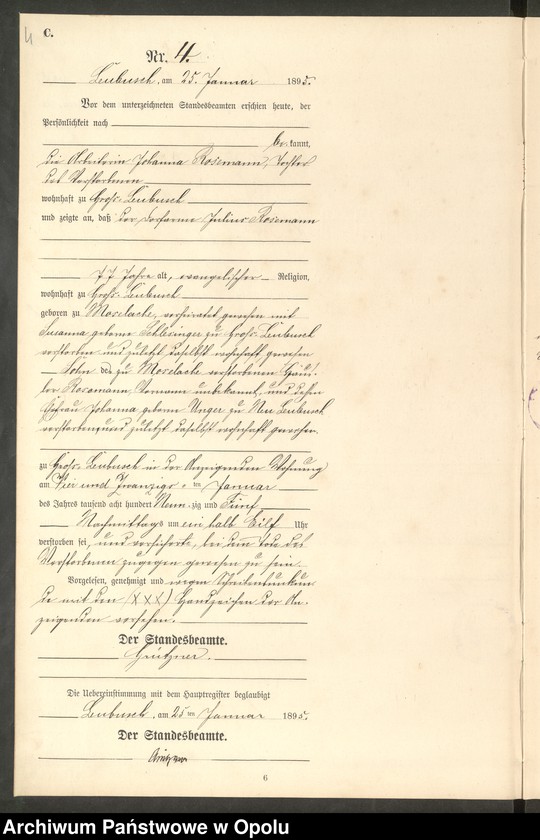 4
C.
Nr. 4.
Leubusch, am 25. Januar 1895.
Vor dem unterzeichneten Standesbeamten erschien heute, der
Persönlichkeit nach
be kannt,
die Arbeiterin Johanna Rosemann, Tochter
des Verstorbenen
wohnhaft zu Groß-Leubusch
und zeigte an, daß der Julius Rosemann
77 Jahre alt, evangelischer Religion,
wohnhaft zu Groß-Leubusch
geboren zu Moselache, verheiratet gewesen mit
Susanna geborne Schlesinger zu Groß-Leubusch
verstorben und zuletzt daselbst wohnhaft gewesen
Sohn des zu Moselache verstorbenen Häus-
ler Rosemann, Vorname unbekannt, und dessen
Ehefrau Johanna geborne Unger zu Neu Leubusch
verstorben und zuletzt daselbst wohnhaft gewesen.
zu Groß-Leubusch in der Anzeigenden Wohnung
am und Zwanzigsten Januar
des Jahres tausend acht hundert Neun zig und Fünf
Nachmittags um ein halb Eilf Uhr
verstorben sei, und versicherte, bei dem Tode des
Verstorbenen zugegen gewesen zu sein.
Vorgelesen, genehmigt und wegen Schreibensunkun
de mit den (XXX) Handzeichen der An-
zeigenden versehen.
Der Standesbeamte.
Der Uebereinstimmung mit dem Hauptregister beglaubigt
Leubusch, am 25ten Januar 1895.
Der Standesbeamte.
6
Archiwum Państwowe w Opolu